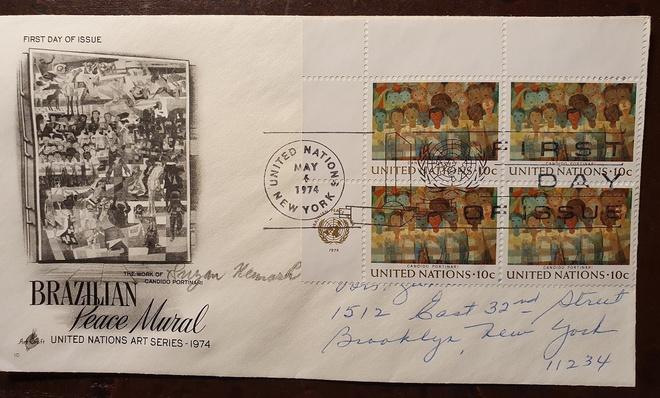 FIRST DAY OF ISSUE
THE WORK OF
CANDIDO PORTINARI
BRAZILIAN
Peace Mural
UNITED NATIONS ART SERIES - 1974
ArtCraft
UNITED NATIONS
MAY
4
1974
NEW YORK
FIRST
DAY
OF ISSUE
CANDIDO PORTINARI
UNITED NATIONS·10c
CANDIDO PORTINARI
UNITED NATIONS·10c
CANDIDO PORTINARI
UNITED NATIONS·10c
CANDIDO PORTINARI
UNITED NATIONS·10c
1974
1512 East 32nd Street
Brooklyn, New York
11234